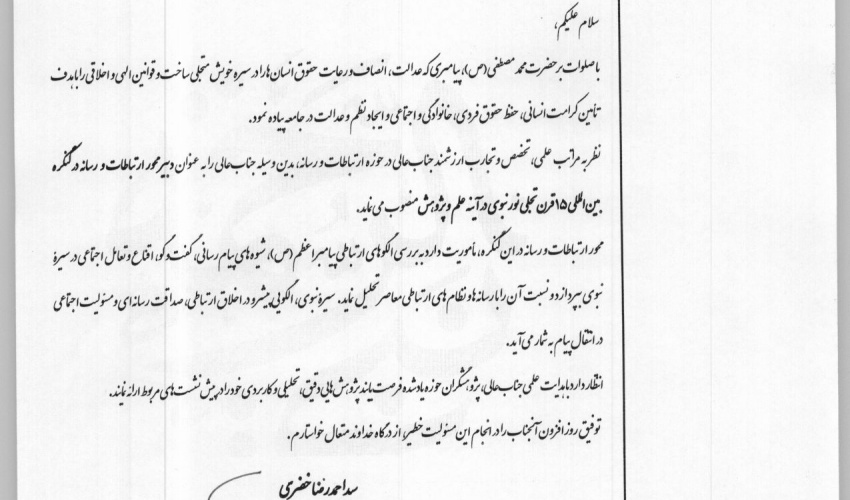 سلام علیکم،
با صلوات بر حضرت محمد مصطفی (ص)، پیامبری که عدالت، انصاف و رعایت حقوق انسان‌ها را در سیره خویش متجلی ساخت و قوانین الهی و اخلاقی را با هدف
تأمین کرامت انسانی، حفظ حقوق فردی، خانوادگی و اجتماعی و ایجاد نظم و عدالت در جامعه پیاده نمود.
نظر به مراتب علمی، تخصص و تجارب ارزشمند جناب‌عالی در حوزه ارتباطات و رسانه، بدین وسیله جناب‌عالی را به عنوان دبیر محور ارتباطات و رسانه در کنگره
بین‌المللی ۱۵ قرن تجلی نور نبوی در آینه علم و پژوهش منصوب می‌نماید.
محور ارتباطات و رسانه در این کنگره، مأموریت دارد به بررسی الگوهای ارتباطی پیامبر اعظم (ص)، شیوه‌های پیام رسانی، گفت‌وگو، اقناع و تعامل اجتماعی در سیرهٔ
نبوی بپردازد و نسبت آن را با رسانه‌ها و نظام‌های ارتباطی معاصر تحلیل نماید. سیرهٔ نبوی، الگویی پیشرو در اخلاق ارتباطی، صداقت رسانه‌ای و مسئولیت اجتماعی
در انتقال پیام به شمار می‌آید.
انتظار دارد با هدایت علمی جناب‌عالی، پژوهشگران حوزه یادشده فرصت یابند پژوهش‌هایی دقیق، تحلیلی و کاربردی خود را در پیش نشست‌های مربوط ارائه نمایند.
توفیق روزافزون آنجناب را در انجام این مسئولیت خطیر، از درگاه خداوند متعال خواستارم.
سید احمدرضا خضری